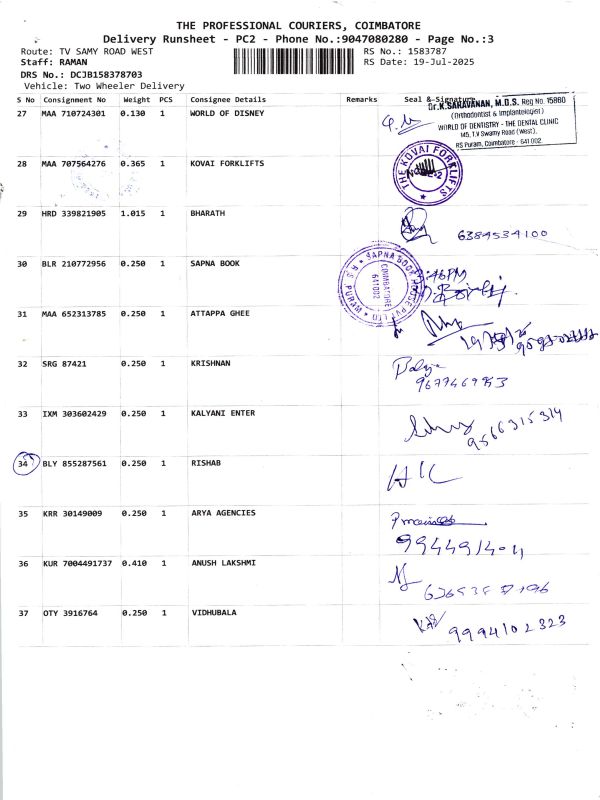 THE PROFESSIONAL COURIERS, COIMBATORE
Delivery Runsheet - PC2 - Phone No.:9047080280 - Page No.:3
Route: TV SAMY ROAD WEST RS No.: 1583787
Staff: RAMAN RS Date: 19-Jul-2025
DRS No.: DCJB158378703
Vehicle: Two Wheeler Delivery
S No Consignment No Weight PCS Consignee Details Remarks Seal & Signature
Dr.K.SARAVANAN, M.D.S. Reg No. 15860
(Orthodontist & Implantologist)
WORLD OF DENTISTRY - THE DENTAL CLINIC
145, T.V Swamy Road (West),
RS Puram, Coimbatore - 641 002.
27 MAA 710724301 0.130 1 WORLD OF DISNEY
28 MAA 707564276 0.365 1 KOVAI FORKLIFTS
THE KOVAI FORKLIFTS
29 HRD 339821905 1.015 1 BHARATH
6384534100
30 BLR 210772956 0.250 1 SAPNA BOOK
SAPNA BOOK HOUSE PVT LTD
R.S. PURAM
COIMBATORE
641002
31 MAA 652313785 0.250 1 ATTAPPA GHEE
32 SRG 87421 0.250 1 KRISHNAN
33 IXM 303602429 0.250 1 KALYANI ENTER
9566315314
34 BLY 855287561 0.250 1 RISHAB
35 KRR 30149009 0.250 1 ARYA AGENCIES
36 KUR 7004491737 0.410 1 ANUSH LAKSHMI
37 OTY 3916764 0.250 1 VIDHUBALA
9994102323